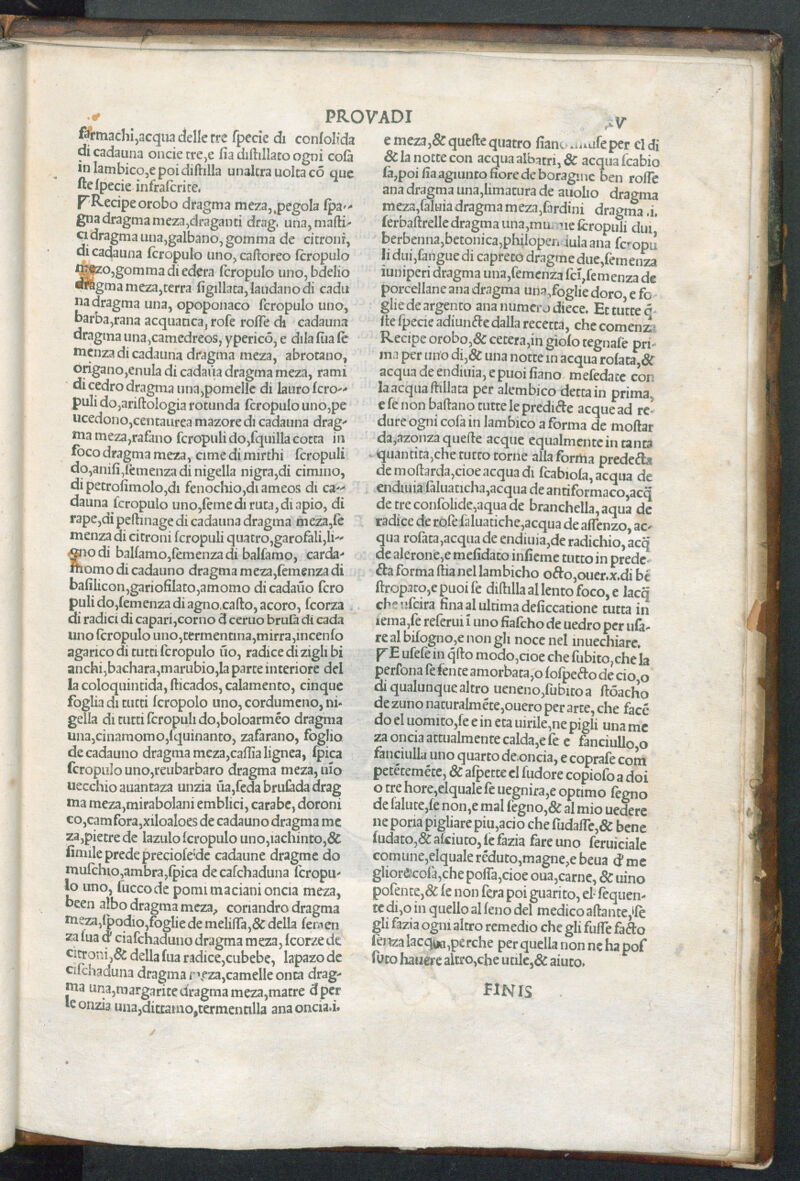 PROVADI
V
farmachi,acqua delle tre ſpecie di conſolida
di cadauna oncie tre,e ſia diſtillato ogni coſa
in lambico,e poi diſtilla unaltra uolta cō que
ſte ſpecie infraſcrite.
Recipe orobo dragma meza,pegola ſpa-
gna dragma meza,draganti drag. una,maſti-
ci dragma una,galbano,gomma de citroni,
di cadauna ſcropulo uno,caſtoreo ſcropulo
mezo,gomma di edera ſcropulo uno,bdelio
dragma meza,terra ſigillata,laudano di cadu
na dragma una, opoponaco ſcropulo uno,
barba,rana acquatica, roſe roſſe di cadauna
dragma una,camedreos, ypericō, e dila ſua ſe
menza di cadauna dragma meza, abrotano,
origano,enula di cadaūa dragma meza, rami
di cedro dragma una,pomelle di lauro ſcro-
puli do,ariſtologia rotunda ſcropulo uno,pe
ucedono,centaurea mazore di cadauna drag-
ma meza,rafano ſcropuli do,ſquilla cotta in
foco dragma meza, cime di mirthi ſcropuli
do,aniſi,ſemenza di nigella nigra,di cimino,
di petroſimolo,di fenochio,di ameos di ca-
dauna ſcropulo uno,ſeme di ruta,di apio, di
rape,di peſtinage di cadauna dragma meza,ſe
menza di citroni ſcropuli quatro,garofali,li-
gno di balſamo,ſemenza di balſamo, carda-
momo di cadauno dragma meza,ſemenza di
baſilicon,gariofilato,amomo di cadaūo ſcro
puli do,ſemenza di agno.caſto, acoro, ſcorza
di radici di capari,corno đ ceruo bruſa di cada
uno ſcropulo uno,termentina,mirra,incenſo
agarico di tutti ſcropulo ūo, radice di zigli bi
anchi,bachara,marubio,la parte interiore del
la coloquintida, ſticados, calamento, cinque
foglia di tutti ſcropolo uno, cordumeno, ni-
gella di tutti ſcropuli do,boloarmēo dragma
una,cinamomo,ſquinanto, zafarano, foglio
de cadauno dragma meza,caſſia lignea, ſpica
ſcropulo uno,reubarbaro dragma meza,
uecchio auantaza unzia ūa,ſeda bruſada drag
ma meza,mirabolani emblici, carabe, doroni
co,camfora,xiloaloes de cadauno dragma me
za,pietre de lazulo ſcropulo uno,iachinto,&
ſimile prede precioſe de cadaune dragme do
muſchio,ambra,ſpica de caſchaduna ſcropu-
lo uno, ſucco de pomi maciani oncia meza,
been albo dragma meza, coriandro dragma
meza,ſpodio,foglie de meliſſa,& della ſemen
za ſua đ ciaſchaduno dragma meza, ſcorze de
citroni,& della ſua radice,cubebe, lapazo de
ciſchaduna dragma meza,camelle onta drag-
ma una,margarite dragma meza,matre đ per
le onzia una,dittamo,termentilla ana oncia.i.
e meza,& queſte quatro ſiano per el di
& la notte con acqua albatri, & acqua ſcabio
ſa,poi ſia agiunto fiore de boragine ben roſſe
ana dragma una,limatura de auolio dragma
meza,ſaluia dragma meza,ſardini dragma .i.
ſerbaſtrelle dragma una,mumie ſcropuli dui,
berbenna,betonica,philopendula ana ſcropu
li dui,ſangue di capreto dragme due,ſemenza
iuniperi dragma una,ſemenza ſcī,ſemenza de
porcellane ana dragma una,foglie doro, e fo
glie de argento ana numero diece. Et tutte q̄
ſte ſpecie adiuncte dalla recetta, che comenza
Recipe orobo,& cetera,in gioſo tegnaſe pri-
ma per uno di,& una notte in acqua roſata,&
acqua de endiuia, e puoi ſiano meſedate con
la acqua ſtillata per alembico detta in prima,
e ſe non baſtano tutte le predicte acque ad re-
dure ogni coſa in lambico a forma de moſtar
da,azonza queſte acque equalmente in tanta
quantita,che tutto torne alla forma predecta
de moſtarda,cioe acqua di ſcabioſa, acqua de
endiuia ſaluaticha,acqua de antiformaco,acq̄
de tre conſolide,aqua de branchella, aqua de
radice de roſe ſaluatiche,acqua de aſſenzo, ac-
qua roſata,acqua de endiuia,de radichio, acq̄
de alerone,e meſidato inſieme tutto in prede-
cta forma ſtia nel lambicho octo,ouer.x.di bē
ſtropato,e puoi ſe diſtilla al lento foco, e lacq̄
che uſcira fina al ultima deſiccatione tutta in
ſema,ſe reſerui ī uno fiaſcho de uedro per uſa-
re al biſogno,e non gli noce nel inuechiare.
E uſeſe in q̄ſto modo,cioe che ſubito,che la
perſona ſe ſente amorbata,o ſoſpecto de cio,o
di qualunque altro ueneno,ſubito a ſtōacho
de zuno naturalmēte,ouero per arte, che facē
do el uomito,ſe e in eta uirile,ne pigli una me
za oncia attualmente calda,e ſe e fanciullo,o
fanciulla uno quarto de oncia, e copraſe com
petētemēte, & aſpette el ſudore copioſo a doi
o tre hore,elquale ſe uegnira,e optimo ſegno
de ſalute,ſe non,e mal ſegno,& al mio uedere
ne poria pigliare piu,acio che ſudaſſe,& bene
ſudato,& aſciuto, ſe fazia fare uno ſeruiciale
comune,elquale rēduto,magne,e beua đ me
gliore coſa,che poſſa,cioe oua,carne, & uino
poſente,& ſe non ſera poi guarito, el ſequen-
te di,o in quello al ſeno del medico aſtante,ſe
gli fazia ogni altro remedio che gli fuſſe facto
ſenza lacqua,perche per quella non ne ha poſ
ſuto hauere altro,che utile,& aiuto.
FINIS